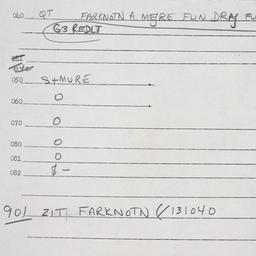 040 QT FARKNOTN A MEJRE FUN DRAJ FU
G3 REDLT
050 S+MURE
060 O
070 O
080 O
081 O
082 $ -
901 ZIT FARKNOTN (/131040